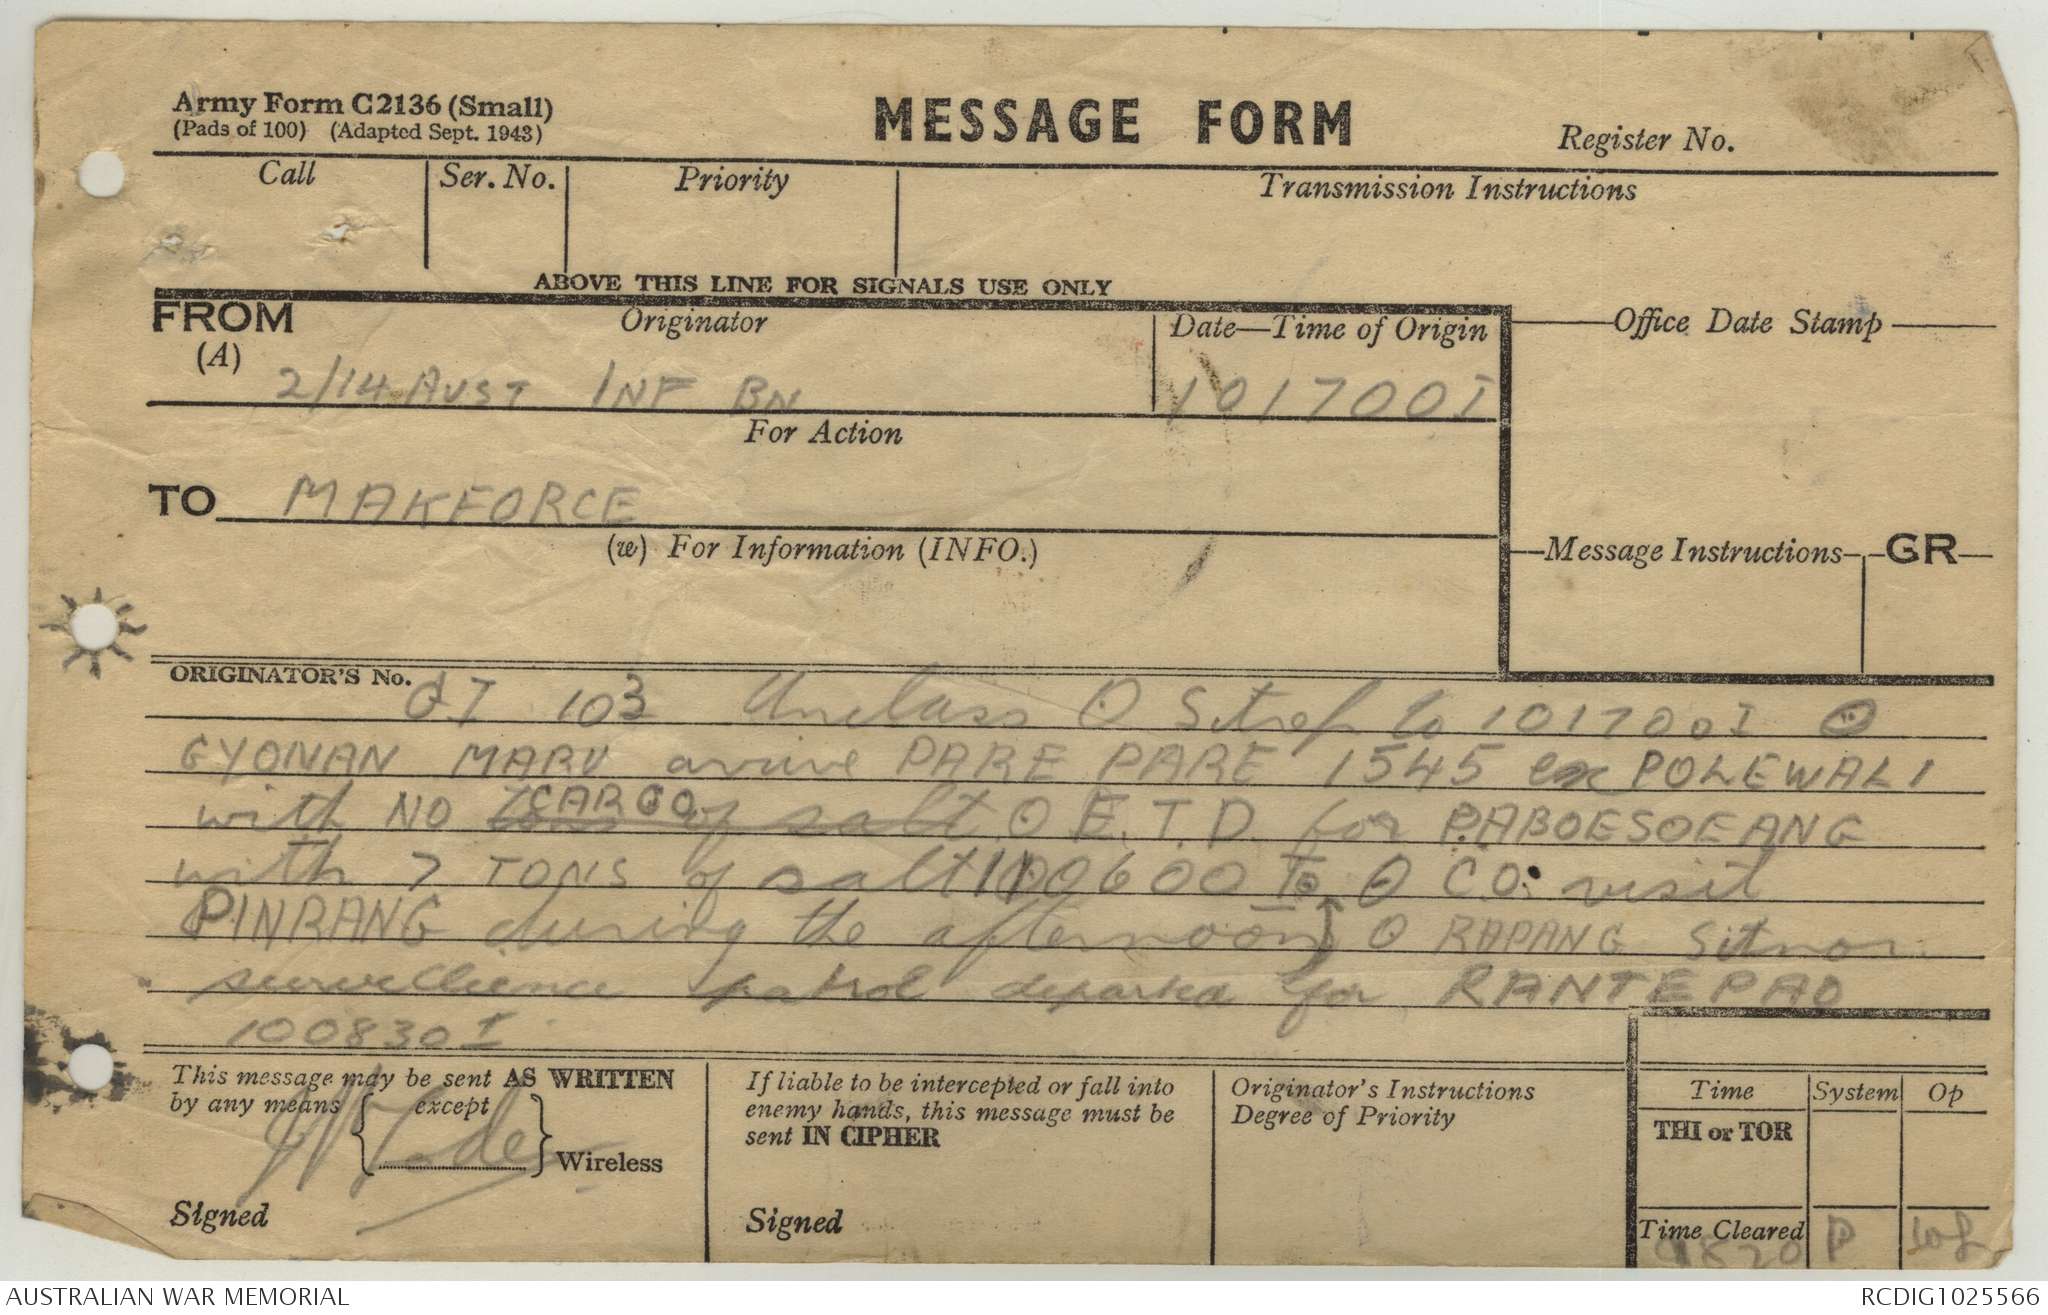 Army Form C2136 (Small)
(Pads of 100) (Adapted Sept. 1943)
MESSAGE FORM
Register No.
Call
Ser. No.
Priority
Transmission Instructions
ABOVE THIS LINE FOR SIGNALS USE ONLY
FROM
(A)
Originator
Date—Time of Origin
Office Date Stamp
2/14 AUST INF BN
101700I
For Action
TO MAKFORCE
(w) For Information (INFO.)
Message Instructions
GR
ORIGINATOR'S No.
OI 103 Unclass O Sitrep to 101700I O
GYONAN MARU arrive PARE PARE 1545 ex POLEWALI
with NO tons CARGO of salt O E.T.D. for PABOESOEANG
with 7 TONS of salt 110600 I O C.O. visit
PINRANG during the afternoon O RAPANG Sitnor
surveillience patrol departed for RANTEPAO
100830I
This message may be sent AS WRITTEN
by any means except
Wireless
Signed
If liable to be intercepted or fall into
enemy hands, this message must be
sent IN CIPHER
Signed
Originator's Instructions
Degree of Priority
Time
System
Op
THI or TOR
Time Cleared
1820 P
AUSTRALIAN WAR MEMORIAL
RCDIG1025566